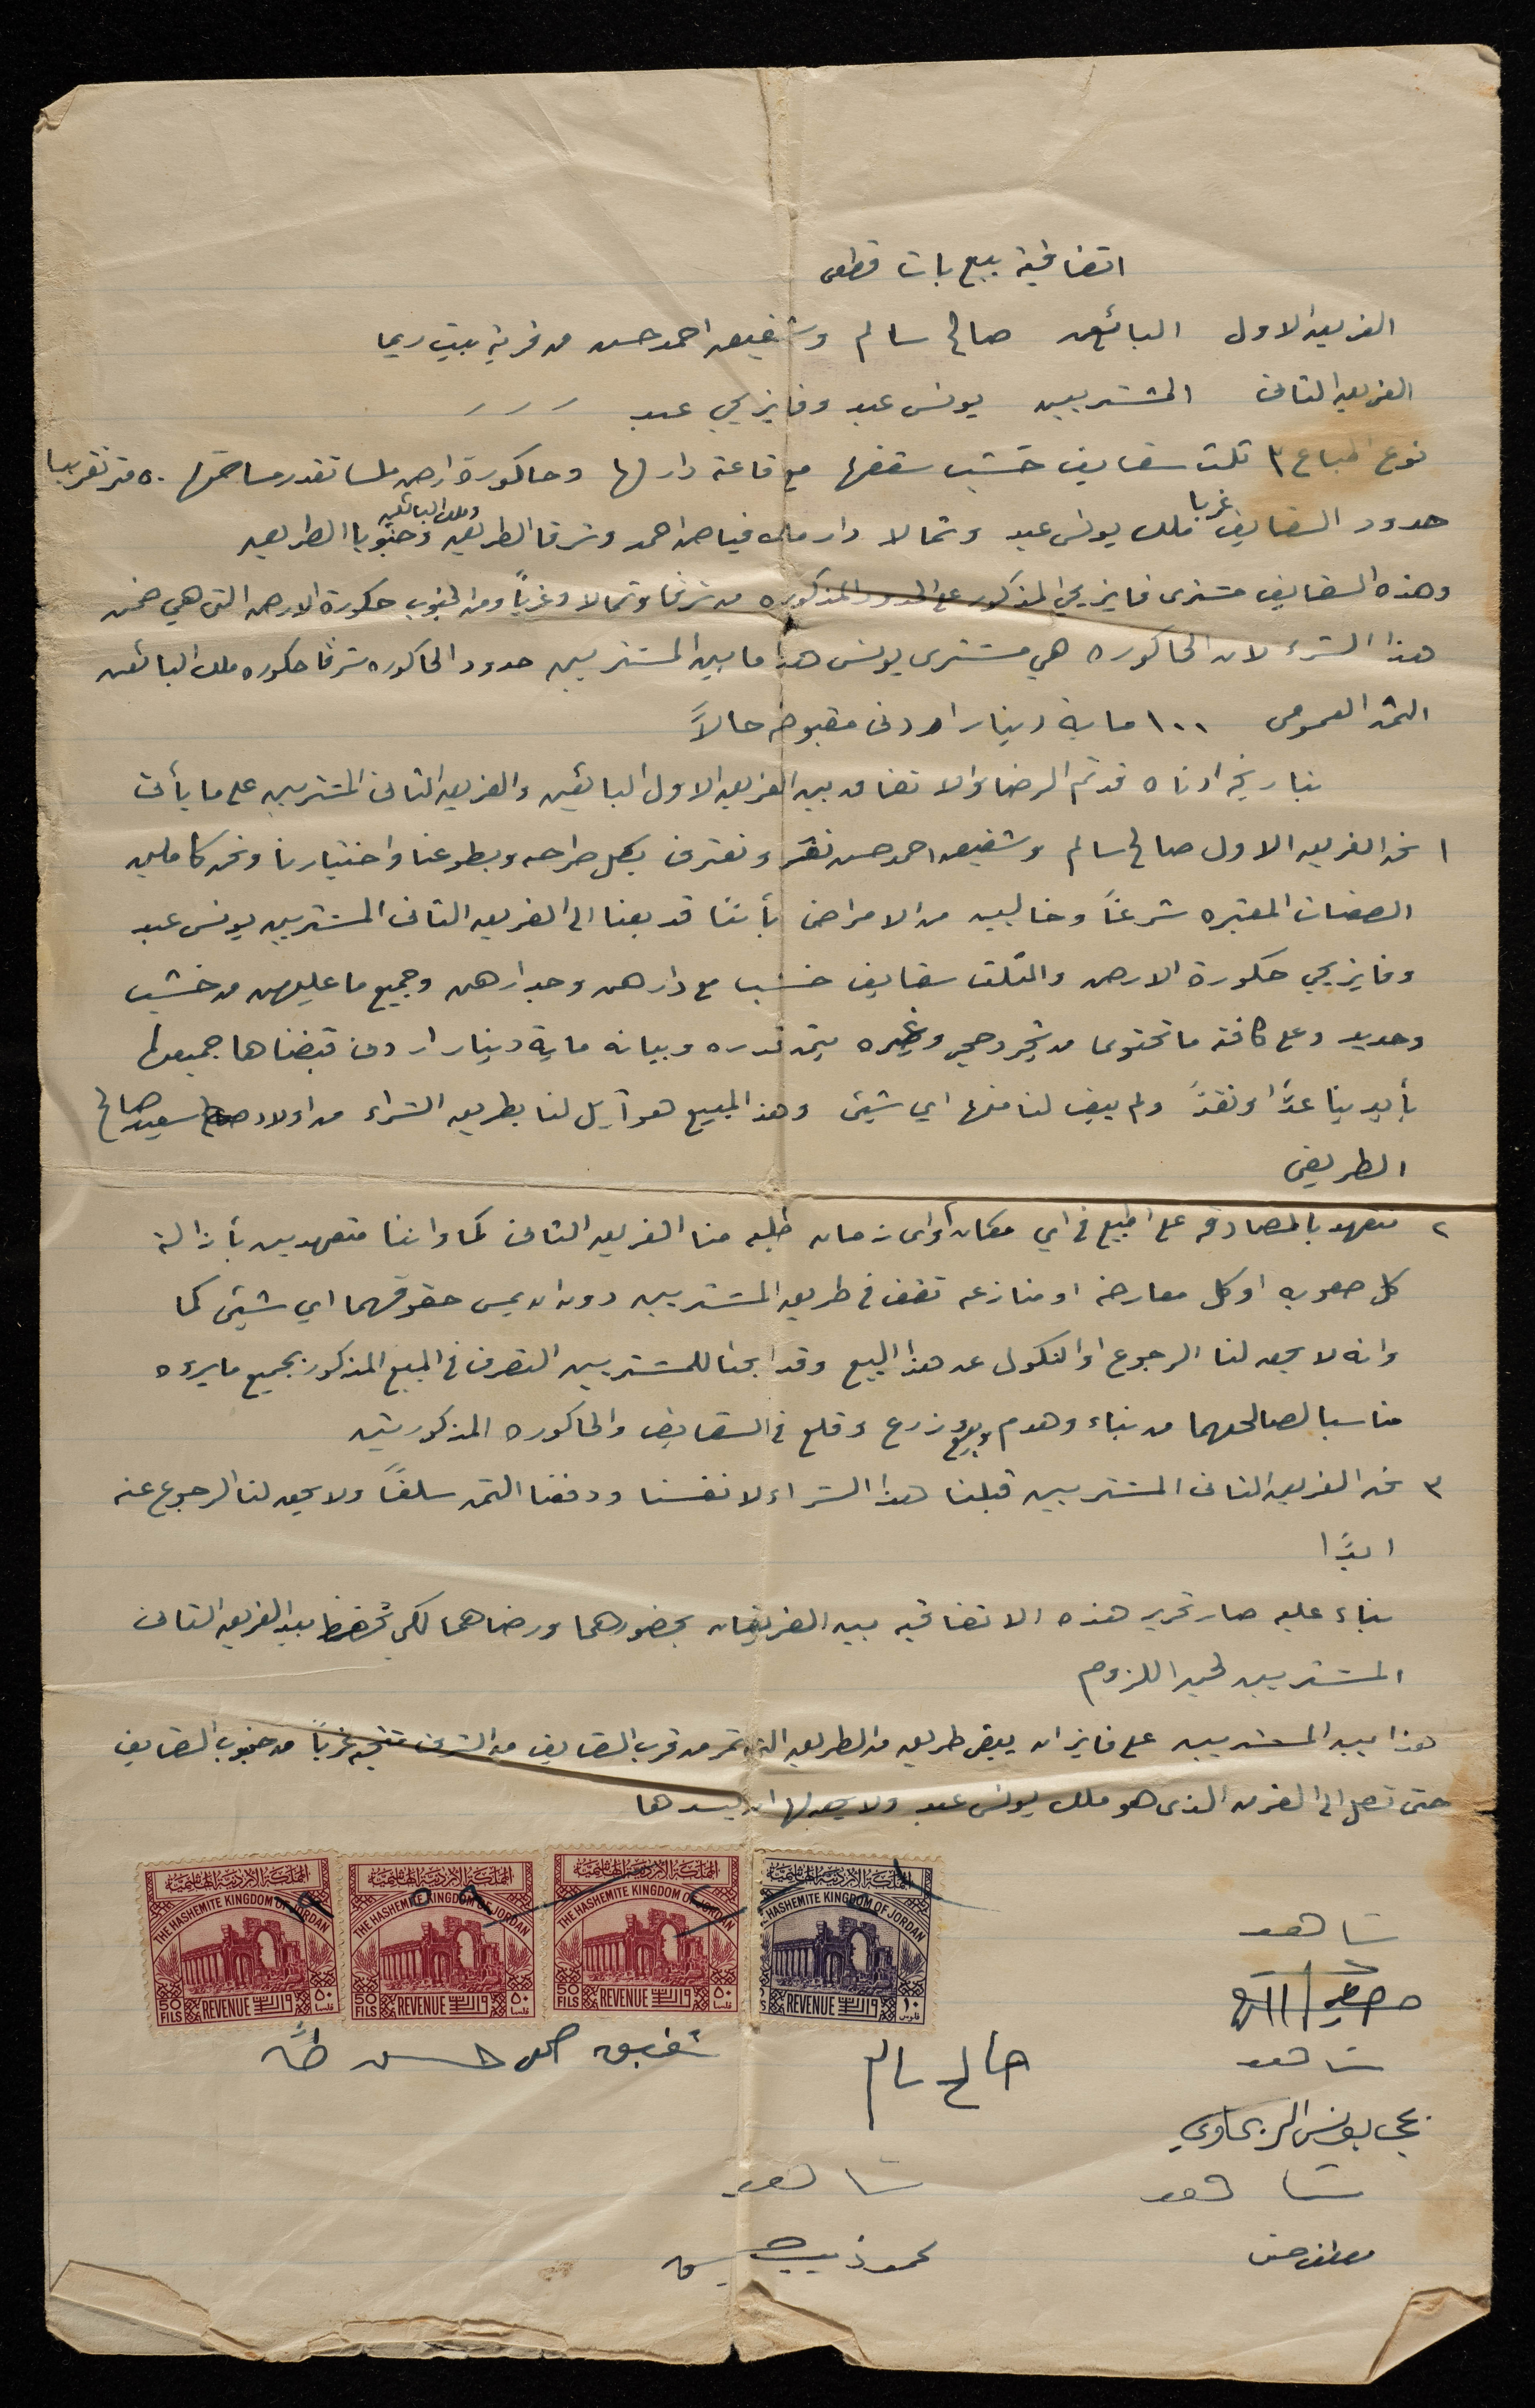 اتفاقية بيع بات قطعي
الفريق الاول البائعين صالح سالم وشفيق احمد حسن من قرية بيت ريما
الفريق الثاني المشتريين يونس عبد وفايز يحي عبد / / /
نوع المباع ٣ ثلث سقايف خشب سقفها مع قاعة دار لها وحاكورة ارض ملسا تقدر مساحتها ٥٠ متر تقريبا
حدود السقايف غربا ملك يونس عبد وشمالا دار ملك فياض احمد وشرقا الطريق وملك البائعين وجنوبا الطريق
وهذه السقايف مشترى فايز يحي المذكور على الحدود المذكوره من شرقا وشمالا وغرباً ومن الجنوب حكورة الارض التي هي ضمن
هذا الشراء لان الحاكوره هي مشترى يونس هذا ما بين المشتريين حدود الحاكوره شرقا حكوره ملك البائعين
الثمن العمومي ١٠٠ ماية دينار اردني مقبوضه حالاً
بتاريخه ادناه قد تم الرضا والاتفاق بين الفريق الاول البائعين والفريق الثاني المشتريين على ما يأتي
١ نحن الفريق الاول صالح سالم وشفيق احمد حسن نقر ونعترف بكل صراحه وبطوعنا واختيارنا ونحن كاملين
الصفات المعتبره شرعاً وخاليين من الامراض بأننا قد بعنا الى الفريق الثاني المشتريين يونس عبد
وفايز يحي حكورة الارض والثلث سقايف خشب مع دارهن وجدارهن وجميع ما عليهن من خشب
وحديد وعلى كافة ما تحتوى من شجر وحجر وغيره بثمن قدره وبيانه ماية دينار اردني قبضناها جميعها
بأيدينا عدًا ونقدً ولم يبق لنا منها اي شيئ وهذا المبيع هو آيل لنا بطريق الشراء من اولاد سعيد صالح
الطريفي
٢ نتعهد بالمصادقه على البيع في اي مكان أو اي زمان طلبه منا الفريق الثاني كما واننا متعهدين بأزالة
كل صعوبه او كل معارضه او منازعه تقف في طريق المشتريين دون ان يمس حقوقهما اي شيئ كما
وانه لا يحق لنا الرجوع او النكول عن هذا البيع وقد ابحنا للمشتريين التصرف في المبيع المذكور بجميع ما يروه
مناسبا لصالحهما من بناء وهدم وبيع وزرع وقلع في السقايف والحاكوره المذكورتين
٣ نحن الفريق الثاني المشتريين قبلنا هذا الشراء لانفسنا ودفعنا الثمن سلفاً ولا يحق لنا الرجوع عنه
ابدًا
بناء عليه صار تحرير هذه الاتفاقيه بين الفريقان بحضورهما ورضاهما لكي تحفظ بيد الفريق الثاني
المشتريين لحين اللزوم
هذا بين المشتريين على فايز ان يبقى طريق من الطريق التي تمر من قرب السقايف من الشرق متجه غرباً من جنوب السقايف
حتى تصل الى الفرن الذي هو ملك يونس عبد ولا يحق لها ان يسدها
المملكة الأردنية الهاشمية المملكة الأردنية الهاشمية المملكة الأردنية الهاشمية المملكة الأردنية الهاشمية
THE HASHEMITE KINGDOM OF JORDAN THE HASHEMITE KINGDOM OF JORDAN THE HASHEMITE KINGDOM OF JORDAN HASHEMITE KINGDOM OF JORDAN
50 FILS REVENUE واردات ٥٠ فلسا 50 FILS REVENUE واردات ٥٠ فلسا 50 FILS REVENUE واردات ٥٠ فلسا S REVENUE واردات ١٠ فلوس
شاهد
صالح سالم
شفيق احمد حسن
شاهد
يحي يونس الريماوي
شاهد
شاهد
مصطفى حسن
محمود ذيب